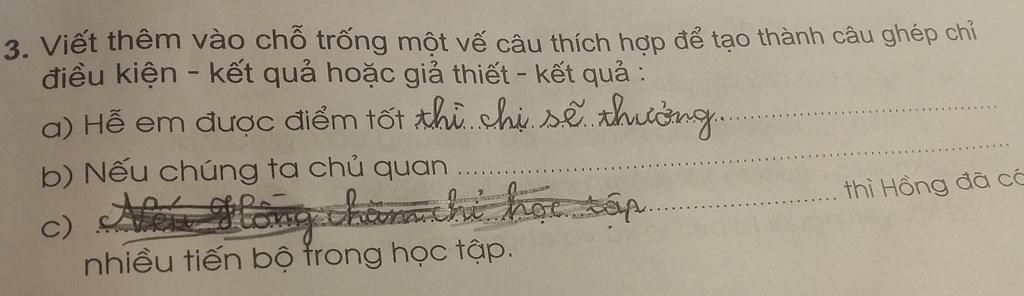 3. Viết thêm vào chỗ trống một vế câu thích hợp để tạo thành câu ghép chỉ
điều kiện - kết quả hoặc giả thiết - kết quả :
a) Hễ em được điểm tốt thì chị sẽ thưởng
b) Nếu chúng ta chủ quan
c) Nếu Hồng chăm chỉ học tập thì Hồng đã có
nhiều tiến bộ trong học tập.